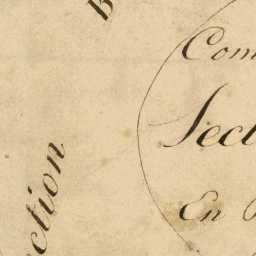 B
Com
Sect
En
ction